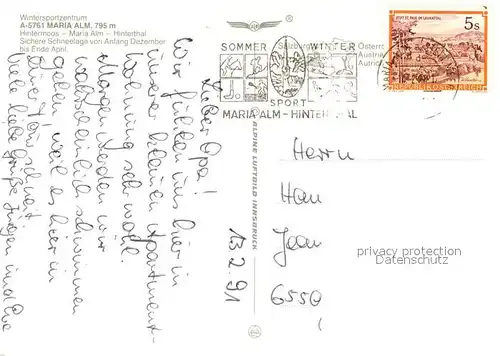 Wintersportzentrum
A-5761 MARIA ALM, 795 m
Hintermoos – Maria Alm – Hinterthal
Sichere Schneelage von Anfang Dezember
bis Ende April.
SOMMER WINTER
SPORT
MARIA ALM - HINTERTHAL
STIFT ST. PAUL IM LAVANTTAL
5s
REPUBLIK ÖSTERREICH
ALPINE LUFTBILD INNSBRUCK
13.2.91
Lieber Opa!
Wir fühlen uns hier in
unserer kleinen Apartment-
wohnung sehr wohl.
Morgen werden wir
wahrscheinlich schwimmen
gehen, weil es hier in
schneit
Viele liebe Grüße Jürgen und Eva
Herrn
Han
Jean
6550
privacy protection
Datenschutz